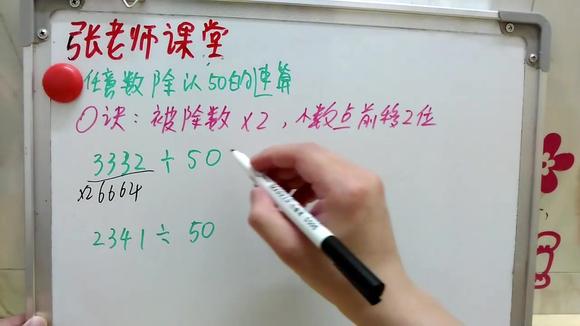 张老师课堂
任意数除以50的速算
口诀：被除数×2，小数点前移2位
3332÷50
×2 6664
2341÷50